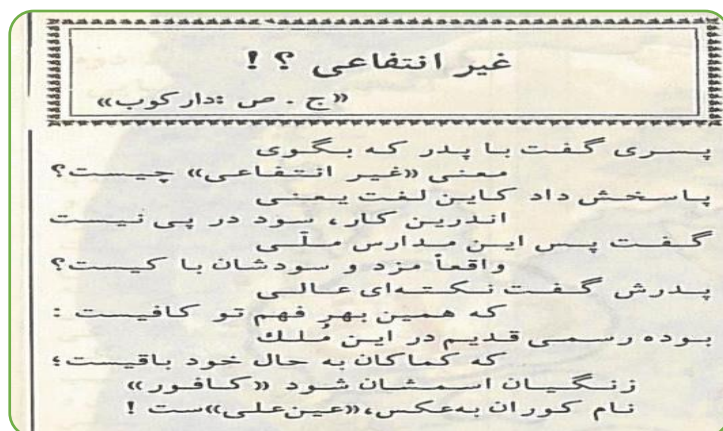 غیر انتفاعی ؟ !
«ج . ص :دارکوب»
پسری گفت با پدر که بگوی
معنی «غیر انتفاعی» چیست؟
پاسخش داد کاین لغت یعنی
اندرین کار، سود در پی نیست
گفت پس این مدارس ملّی
واقعاً مزد و سودشان با کیست؟
پدرش گفت نکته‌ای عالی
که همین بهر فهم تو کافیست :
بوده رسمی قدیم در این مُلك
که کماکان به حال خود باقیست؛
زنگیان اسمشان شود «کافور»
نام کوران به‌عکس،«عین‌علی»ست !